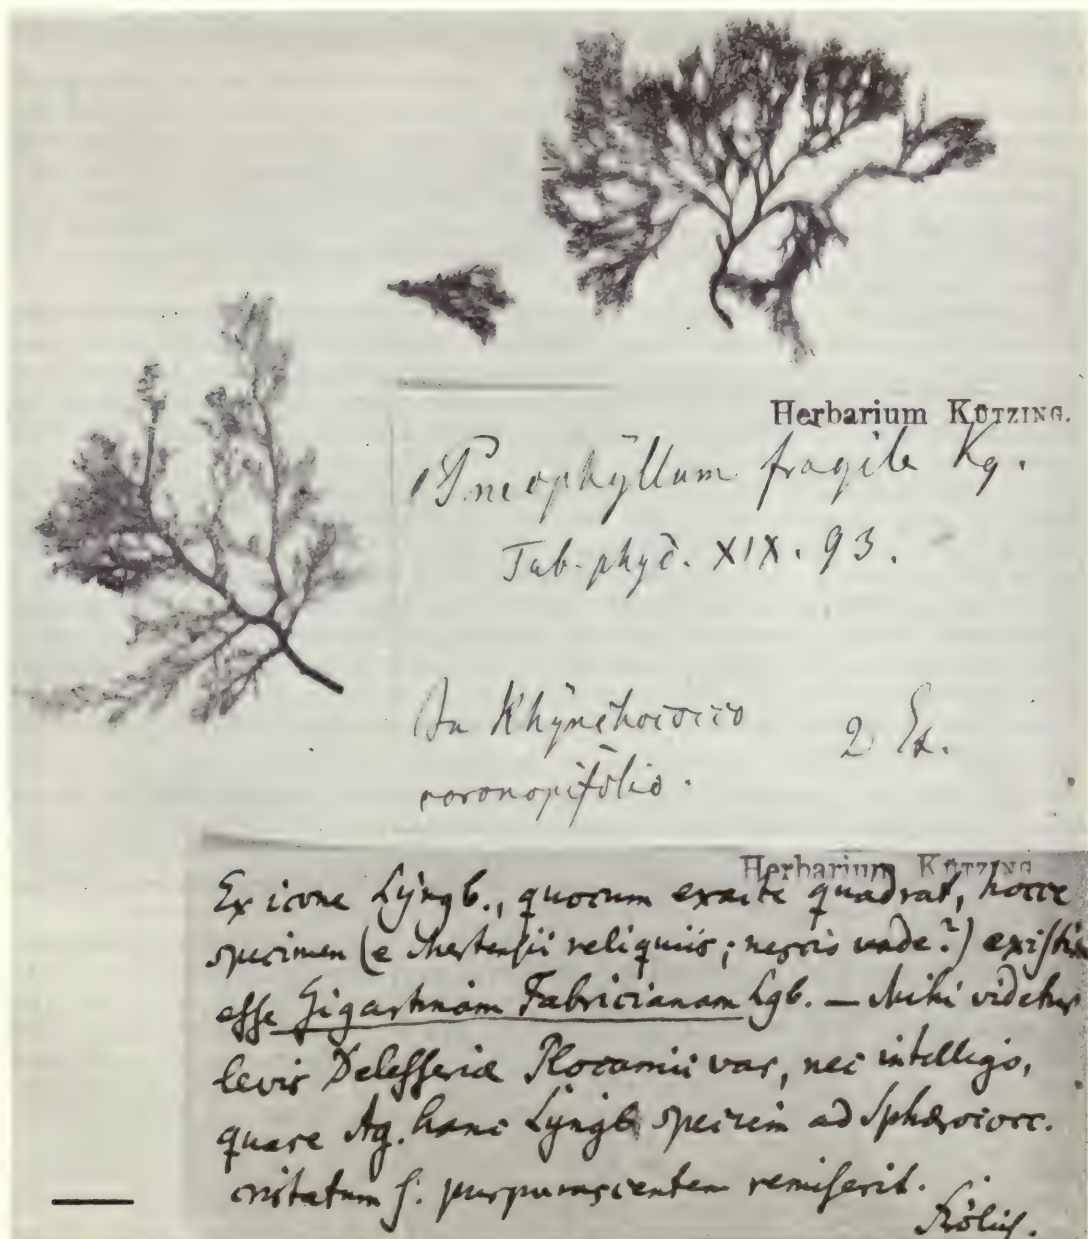 Herbarium KÜTZING.
Pneophyllum fragile Kg.
Tab. phyc. XIX. 93.
In Rhynchococco 2 Ex.
coronopifolio.
Herbarium KÜTZING
Ex icone Lyngb., quocum exacte quadrat, hocce
specimen (e Mertensii reliquiis; nescio unde?) existim
esse Gigartinam Fabricianam Lgb. — Mihi videtur
levis Delesseriæ Plocamii var, nec intelligo,
quare Ag. hanc Lyngb. speciem ad Sphærococc.
cristatum f. purpurascentem remiserit.
Frölich.